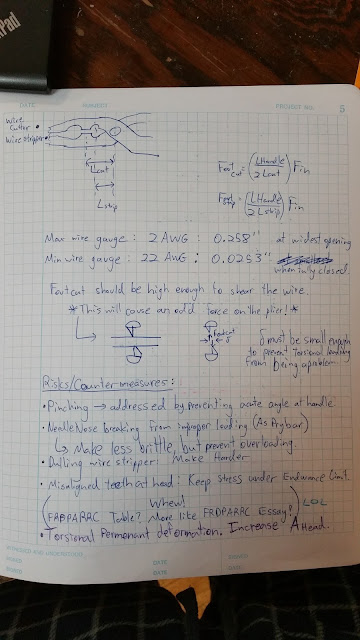 Pad
DATE
NUMBER
PROJECT NO.
5
Wire
Cutter
Wire stripper
Lcut
Lstrip
Foutcut = (LHandle / 2Lcut) Fin
Foutstrip = (LHandle / 2Lstrip) Fin
Max wire gauge : 2 AWG : 0.258" at widest opening
Min wire gauge : 22 AWG : 0.0253"
when fully closed.
Foutcut should be high enough to shear the wire
*This will cause an odd force on the plier!*
Foutcut
δ
δ must be small enough
to prevent Torsional loading
from being a problem
Risks/Countermeasures:
• Pinching → addressed by preventing acute angle at handle.
• Needle Nose breaking from improper loading (As Prybar)
↳ Make less brittle, but prevent overloading.
• Dulling wire stripper: Make Harder
• Misaligned teeth at head: Keep stress under Endurance Limit.
(Whew!
FRDPARRC Table? More like FRDPARRC Essay!) LOL
• Torsional Permanent deformation. Increase A Head.
WITNESSED AND UNDERSTOOD
SIGNED
DATE
DATE
DATE